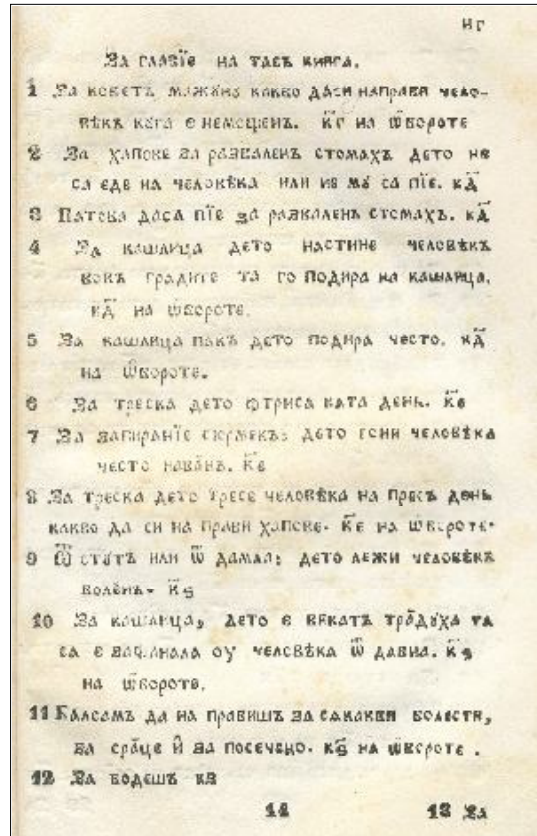 нг
За главїе на тавъ книга.
1 За коветъ мажину какво даси направи чело-
вѣкъ кага є немощенъ. к҃г на ѿбороте
2 За хапове за разваленъ стомахъ дето не
са еде на человѣка или не мꙋ са пїе. к҃д
3 Патока даса пїе за разваленъ стомахъ. к҃д
4 За кашлица дето настине человѣкъ
вовъ градите та го подира на кашлица.
к҃д на ѿбороте.
5 За кашлица пакъ дето подира често. к҃д
на ѿбороте.
6 За треска дето ѡтриса ката день. к҃е
7 За запиранїе сюрмекъ: дето гони человѣка
често навънъ. к҃е
8 За треска дето тресе человѣка на пресъ день
какво да си на прави хапове. к҃е на ѿбороте.
9 Ѿ стꙋтъ или ѿ дамла: дето лежи человѣкъ
воленъ. к҃ѕ
10 За кашлица, дето є викатъ традꙋха та
са є вафанала оу человѣка ѿ давна. к҃ѕ
на ѿбороте.
11 Балсамъ да на правишъ за сакакви болести,
за сраце и за посечено. к҃ѕ на ѿбороте.
12 За бодешъ кз
14 13 За